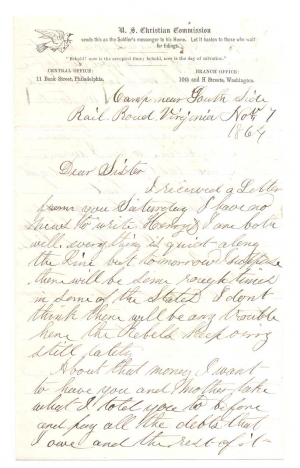 U. S. Christian Commission
sends this as the Soldier's messenger to his Home. Let it hasten to those who wait
for tidings.
"Behold! now is the accepted time; behold, now is the day of salvation."
CENTRAL OFFICE:
11 Bank Street, Philadelphia.
BRANCH OFFICE:
10th and H Streets, Washington.
Camp near South Side
Rail Road Virginia Nov 7
1864
Dear Sister
I received a Letter
from you Saturday I have no
news to write Henry & I are both
well everything is quiet along
the line but tomorrow I suppose
there will be some rough times
in some of the States I dont
think there will be any trouble
here the Rebels keep
still lately
About that money I want
to have you and Mother take
what I told you to before
and pay all the debts that
I owe and the rest of it